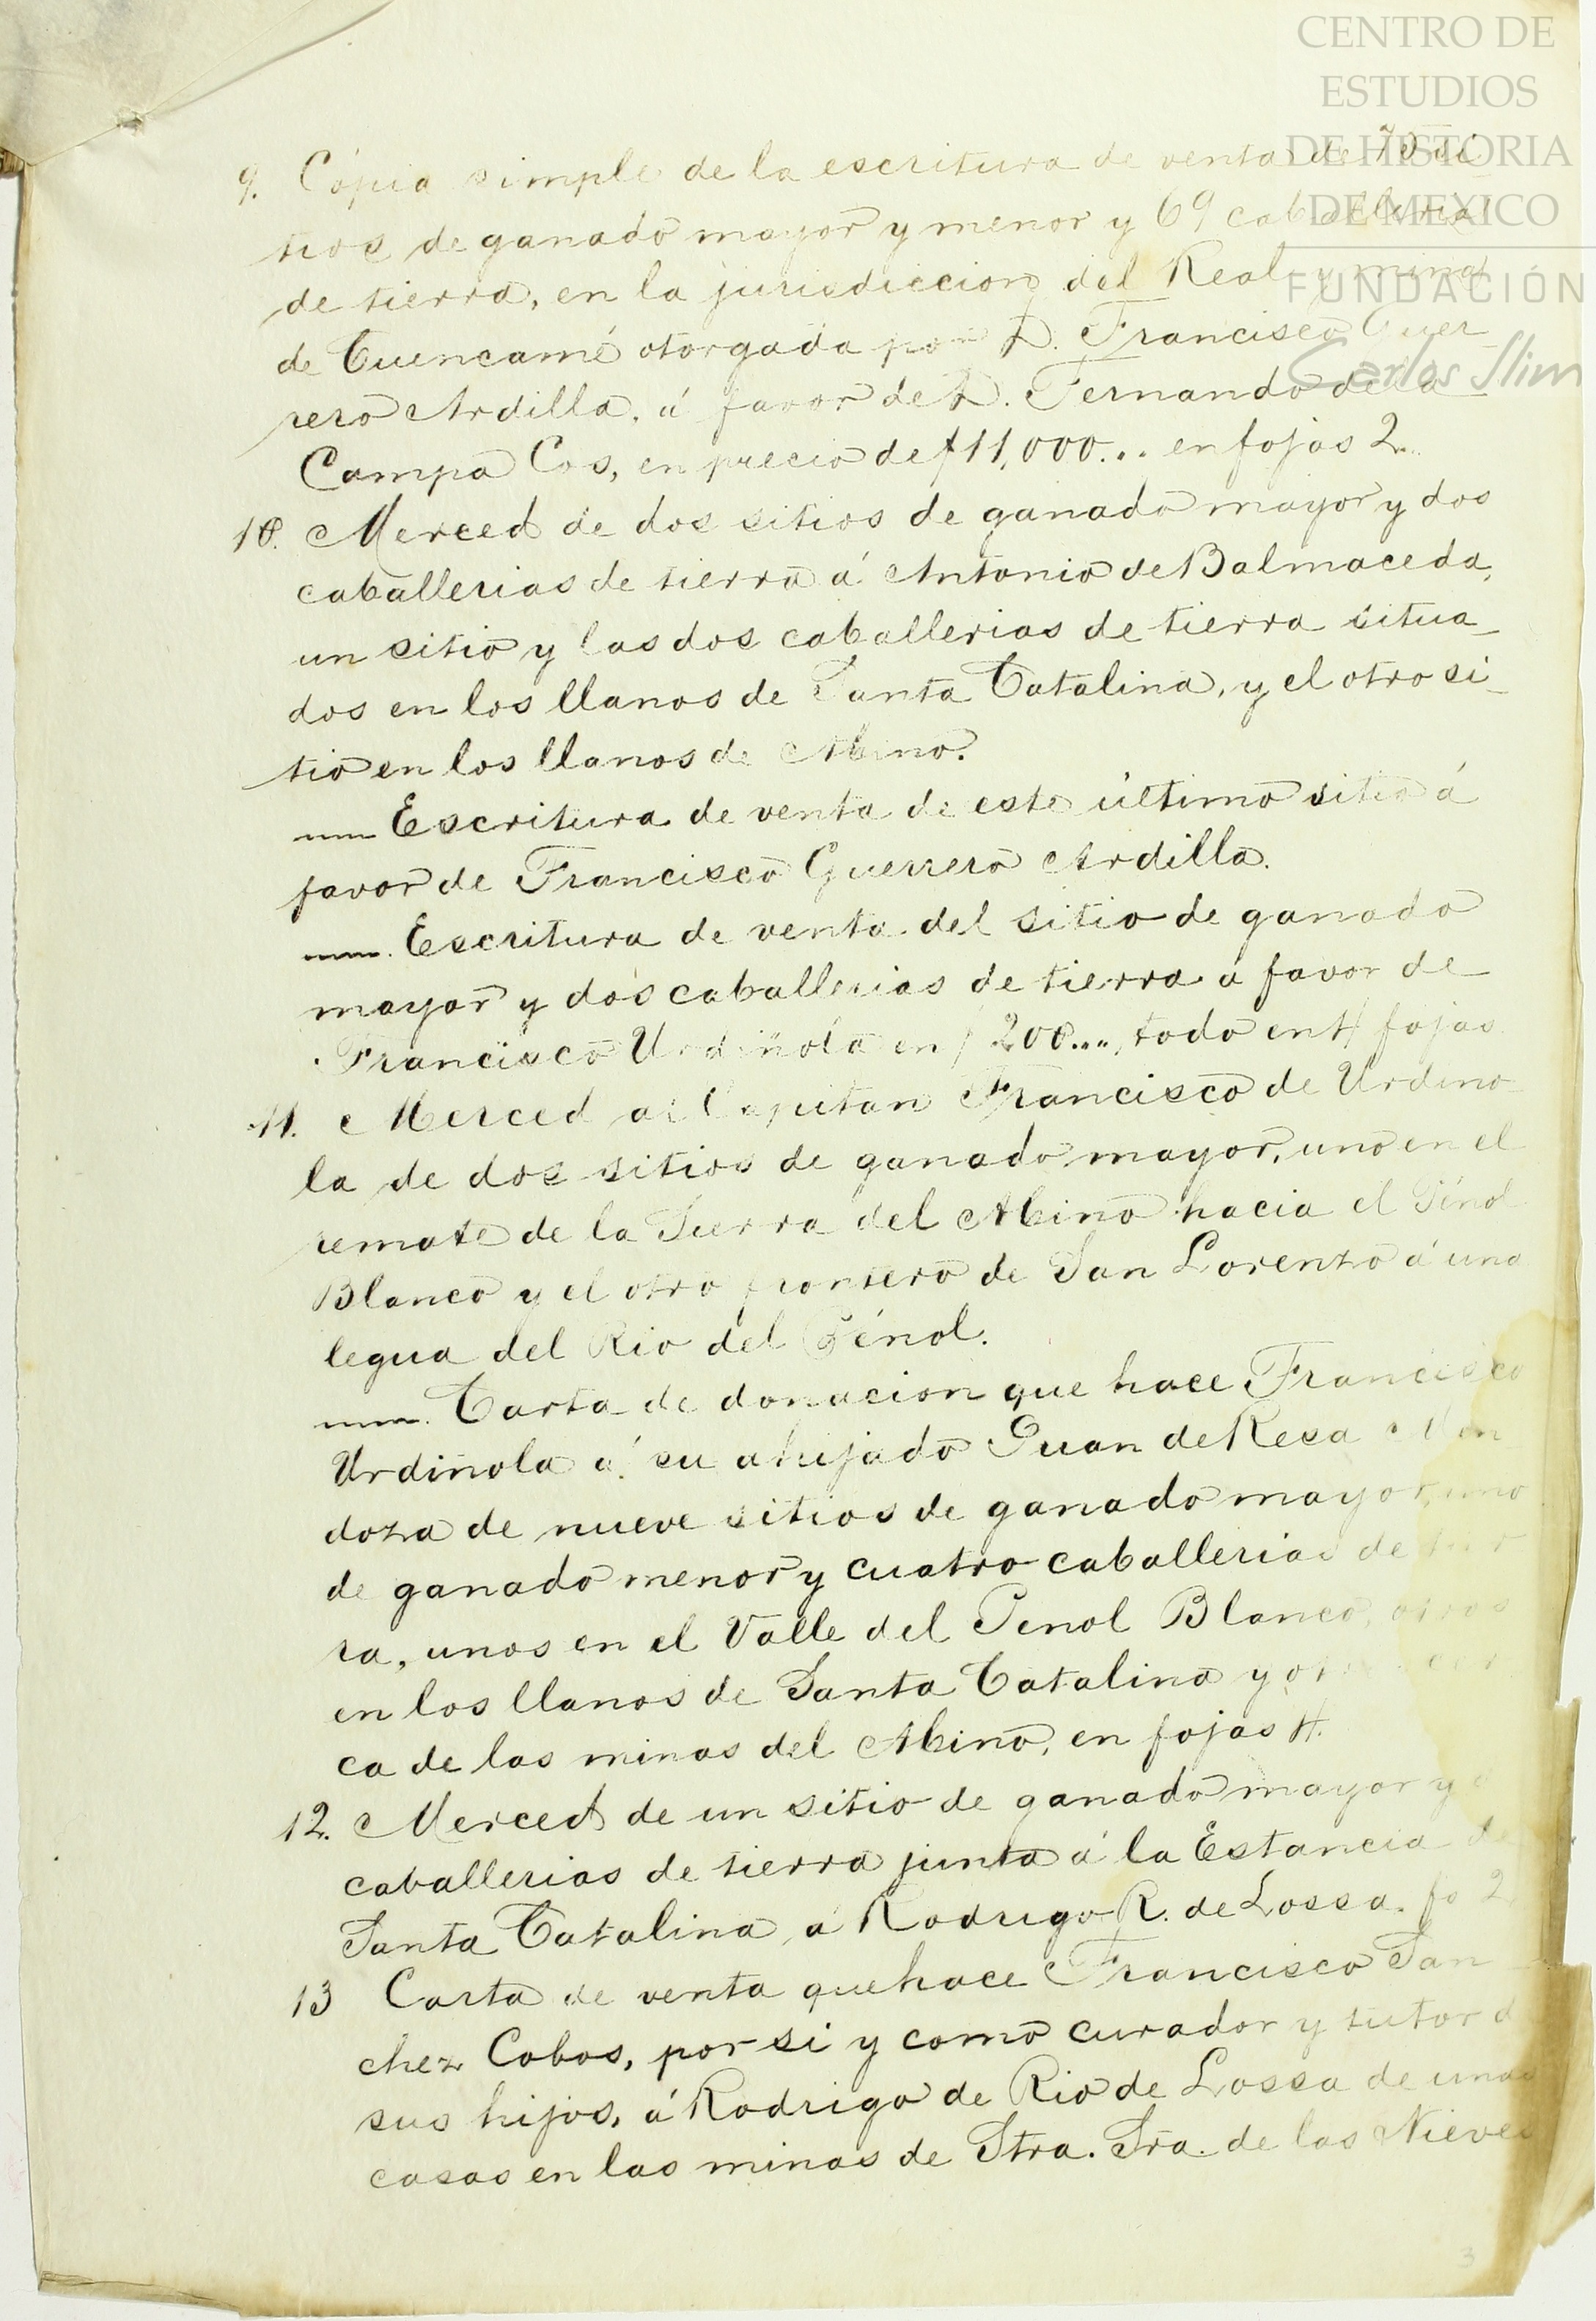 CENTRO DE
ESTUDIOS
DE HISTORIA
DE MEXICO
FUNDACIÓN
Carlos Slim
9. Cópia simple de la escritura de venta de 79 si
tios de ganado mayor y menor y 69 caballerias
de tierra, en la jurisdiccion del Real y minas
de Cuencamé otorgada por D. Francisco Guer
rero Ardilla, á favor de D. Fernando de la
Campa Cos, en precio de $11,000... en fojas 2.
10. Merced de dos sitios de ganado mayor y dos
caballerias de tierra á Antonio de Balmaceda,
un sitio y las dos caballerias de tierra situa_
dos en los llanos de Santa Catalina, y el otro si_
tio en los llanos de Abino.
Escritura de venta de este último sitio á
favor de Francisco Guerrero Ardilla.
Escritura de venta del sitio de ganado
mayor y dos caballerias de tierra a favor de
Francisco Urdiñola en $200..., todo en 4 fojas
11. Merced al Capitan Francisco de Urdino
la de dos sitios de ganado mayor, uno en el
remate de la Sierra del Abino hacia el Pénol
Blanco y el otro frontero de San Lorenzo á una
legua del Rio del Pénol.
Carta de donacion que hace Francisco
Urdiñola á su ahijado Juan de Resa Men
doza de nueve sitios de ganado mayor, uno
de ganado menor y cuatro caballerias de tier
ra, unos en el Valle del Penol Blanco, otros
en los llanos de Santa Catalina y otros cer
ca de las minas del Abino, en fojas 4.
12. Merced de un sitio de ganado mayor y
caballerias de tierra junta á la Estancia de
Santa Catalina, a Rodrigo R. de Lossa. fo 2
13 Carta de venta que hace Francisco San
chez Cobos, por si y como curador y tutor d
sus hijos, á Rodrigo de Rio de Lossa de unas
casas en las minas de Stra. Sra. de las Nieves
3